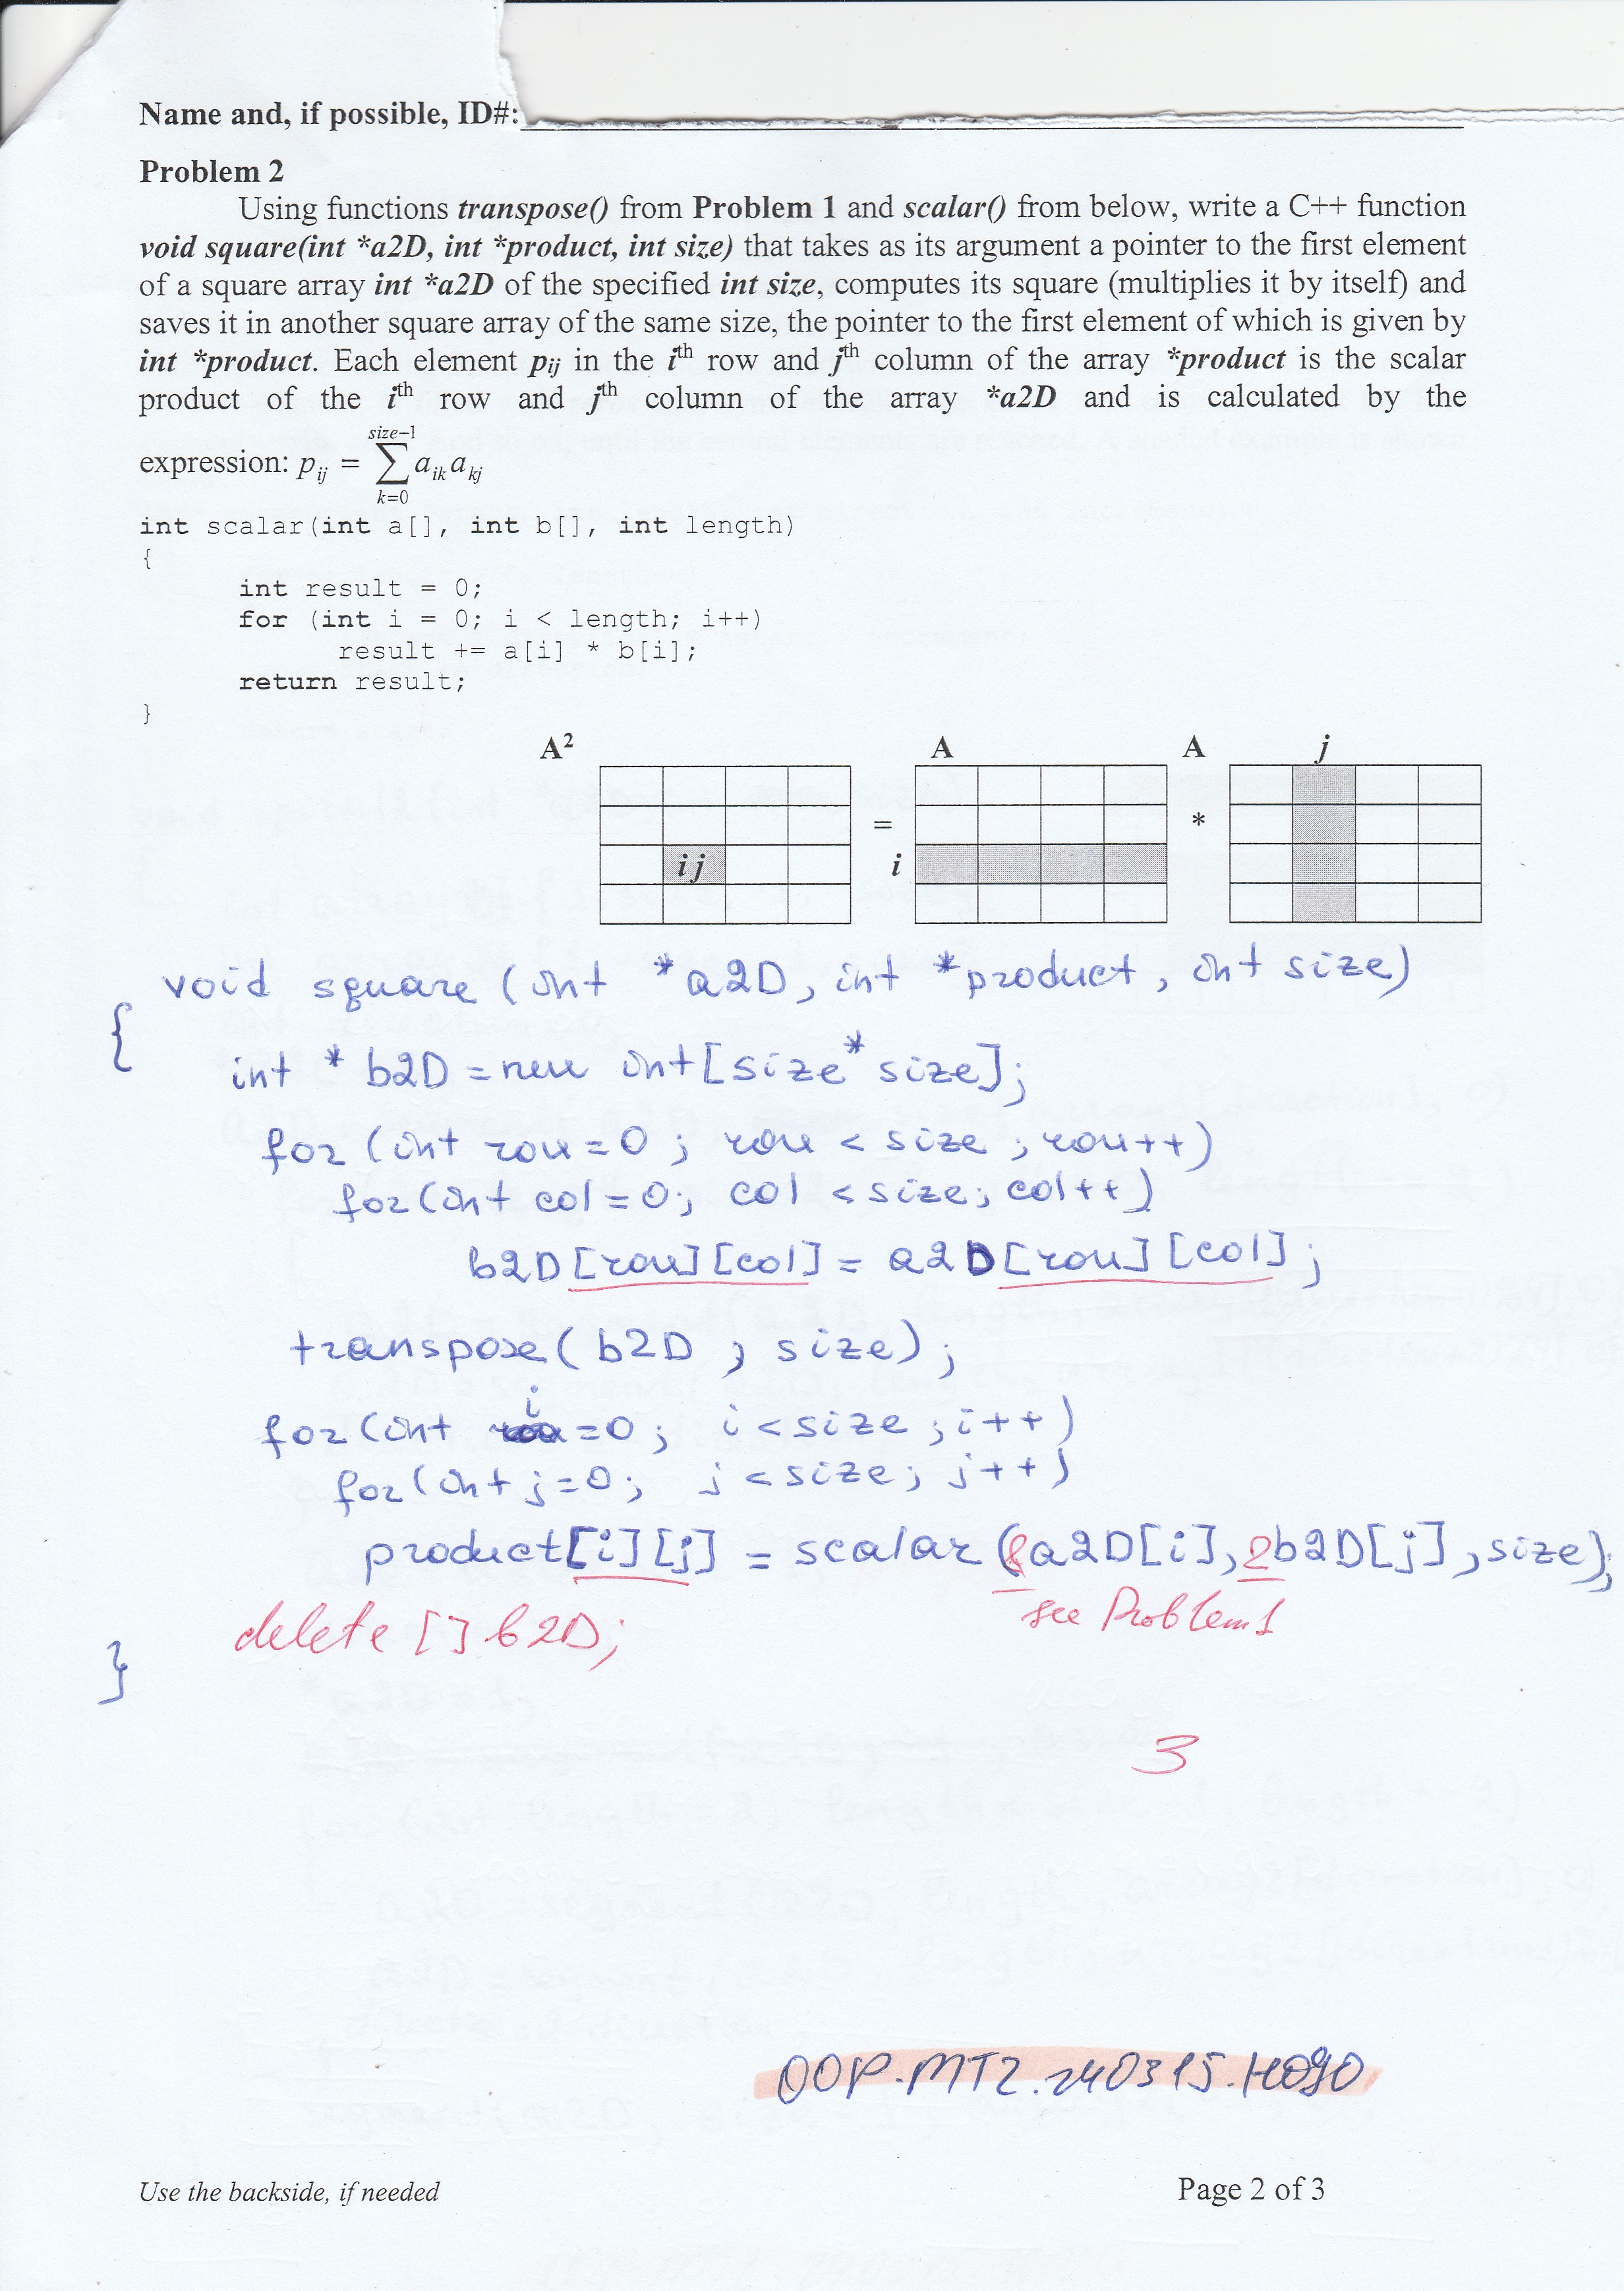 Name and, if possible, ID#:
Problem 2
Using functions transpose() from Problem 1 and scalar() from below, write a C++ function
void square(int *a2D, int *product, int size) that takes as its argument a pointer to the first element
of a square array int *a2D of the specified int size, computes its square (multiplies it by itself) and
saves it in another square array of the same size, the pointer to the first element of which is given by
int *product. Each element pij in the ith row and jth column of the array *product is the scalar
product of the ith row and jth column of the array *a2D and is calculated by the
size–1
expression: pij = ∑ aik akj
k=0
int scalar(int a[], int b[], int length)
{
int result = 0;
for (int i = 0; i < length; i++)
result += a[i] * b[i];
return result;
}
A² A A j
= *
i j i
void square (int *a2D, int *product, int size)
{
int * b2D = new int[size*size];
for (int row=0 ; row < size ; row++)
for(int col=0; col <size; col++)
b2D[row][col] = a2D[row][col];
transpose( b2D , size);
for(int i=0; i<size ; i++)
for(int j=0; j <size; j++)
product[i][j] = scalar (&a2D[i], &b2D[j], size);
see Problem 1
delete [] b2D;
}
3
OOP.MT2.240315.H090
Use the backside, if needed
Page 2 of 3